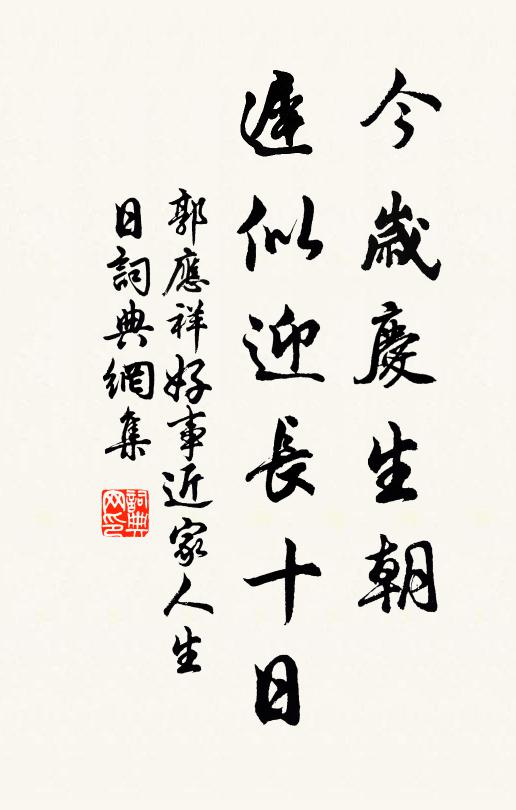 今歲慶生朝
遲似迎長十日
郭應祥好事近家人生
日詞典網集
詞典網印